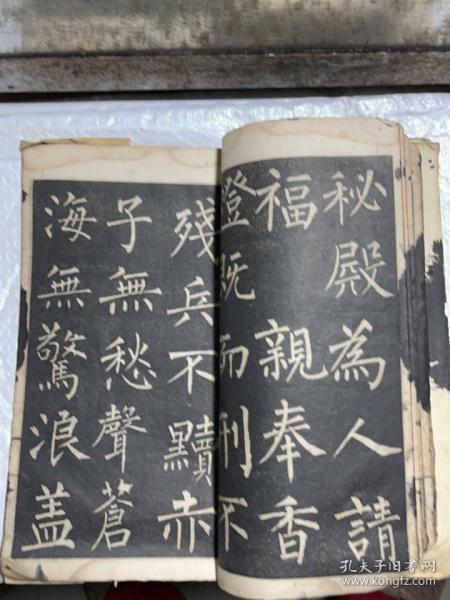 秘殿為人請
福親奉香
燈既而刑不
殘兵不黷赤
子無愁聲蒼
海無驚浪蓋
孔夫子旧书网
www.kongfz.com